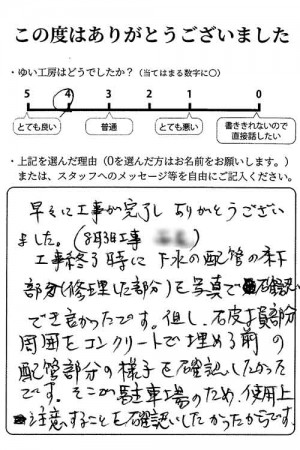 この度はありがとうございました
・ゆい工房はどうでしたか？（当てはまる数字に○）
5 4 3 2 1 0
とても良い 普通 とても悪い 書ききれないので直接話したい
・上記を選んだ理由（0を選んだ方はお名前をお願いします。）
または、スタッフへのメッセージ等を自由にご記入ください。
早々に工事が完了し ありがとうござい
ました。（8月3日工事
工事終了時に下水の配管の
部分（修理した部分）を写真で確認
でき良かったです。但し、破損部分
周囲をコンクリートで埋める前の
配管部分の様子を確認したかった
です。そこが駐車場のため、使用上
注意することを確認いしたかったからです。